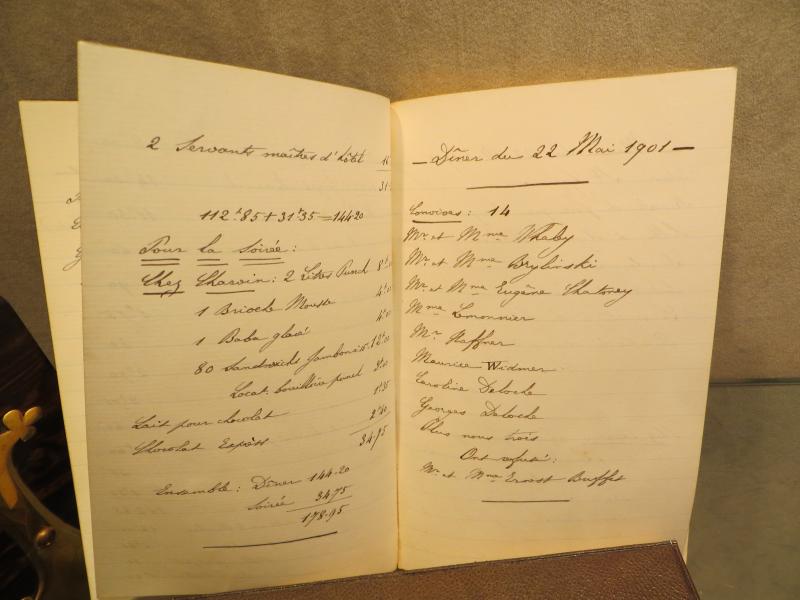 2 Servants maîtres d'hôtel
31.
112f.85 + 31f.35 = 144.20
Pour la Soirée:
Chez Charvin: 2 Litres Punch 8f.
1 Brioche Mousse 4f.
1 Baba glacé 4f.
80 Sandwichs Jambon 12f.
Locat. bouilloire punch
Lait pour chocolat 1f.35
Chocolat Express 2f.
34.95
Ensemble: Dîner 144.20
Soirée 34.75
178.95
— Dîner du 22 Mai 1901 —
Convives: 14
Mr et Mme Whaley
Mr et Mme Brylinski
Mr et Mme Eugène Chatoney
Mme Lemonnier
Mr Haffner
Maurice Widmer
Caroline Deloche
Georges Deloche
Plus nous trois
Ont refusé:
Mr et Mme Ernest Buffet